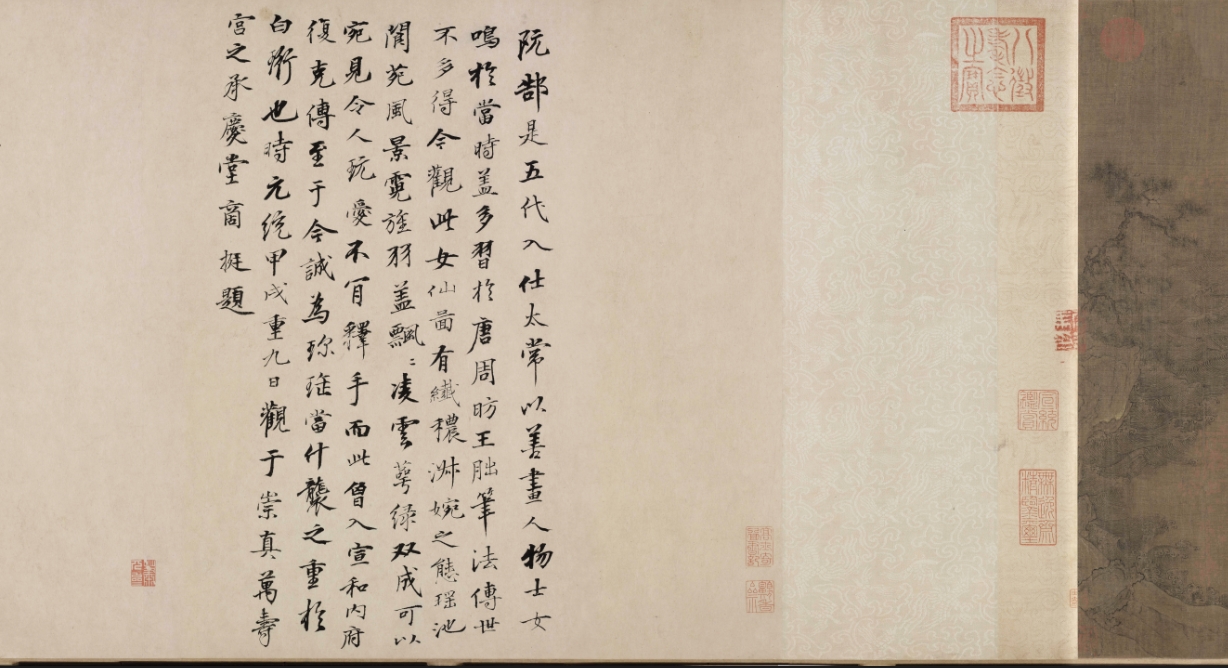 八徵耄念之寶
宣統鑑賞
無逸齋精鑑璽
阮郜是五代入仕太常以善畫人物士女
鳴於當時盖多習於唐周昉王朏筆法傳世
不多得今觀此女仙啚有纖穠淑婉之態瑶池
閬苑風景霓旌羽盖飄〻凌雲萼緑双成可以
宛見令人玩愛不肎釋手而此曾入宣和内府
復克傳至于今誠為珎瑶當什襲之重於
白珩也時元統甲戌重九日觀于崇真萬壽
宫之承慶堂商挺題